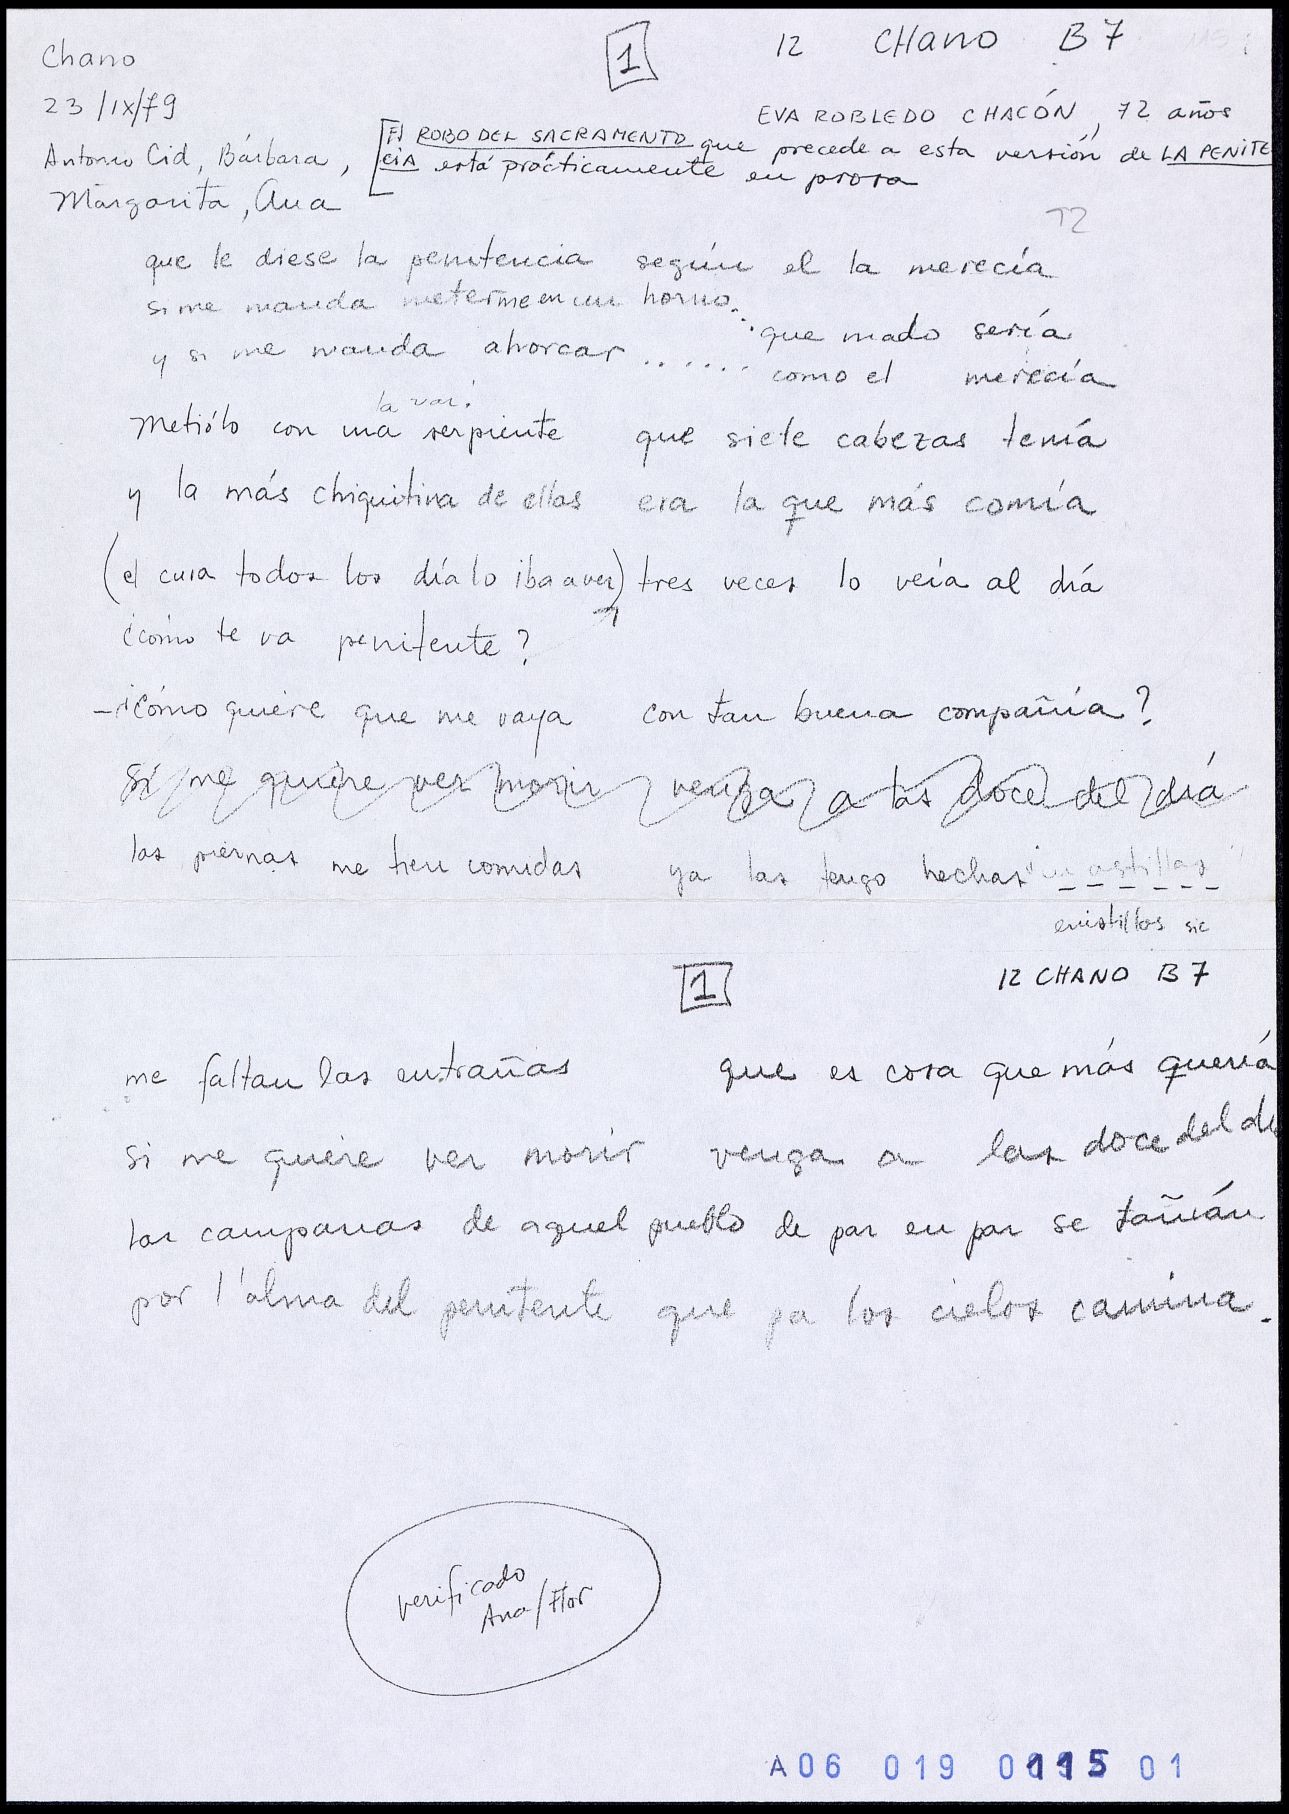 Chano
1
12 CHANO B7
23/IX/79
EVA ROBLEDO CHACÓN, 72 años
Antonio Cid, Bárbara,
Margarita, Ana
[El ROBO DEL SACRAMENTO que precede a esta versión de LA PENITE
CIA está prácticamente en prosa
72
que le diese la penitencia según el la merecía
si me manda meterme en un horno.. ..que mado sería
y si me manda ahorcar ....... como el merecía
la var.
Metiólo con una serpiente que siete cabezas tenía
y la más chiquitina de ellas era la que más comía
(el cura todos los día lo iba a ver) tres veces lo veía al día
¿cómo te va penitente?
-¿Cómo quiere que me vaya con tan buena compañía?
Si me quiere ver morir venga a las doce del día
las piernas me tien comidas ya las tengo hechas "en astillas"
enistillas sic
1
12 CHANO B7
me faltan las entrañas que es cosa que más quería
si me quiere ver morir venga a las doce del dí
las campanas de aquel pueblo de par en par se tañían
por l'alma del penitente que pa los cielos camina.
verificado
Ana/Flor
A06 019 0115 01